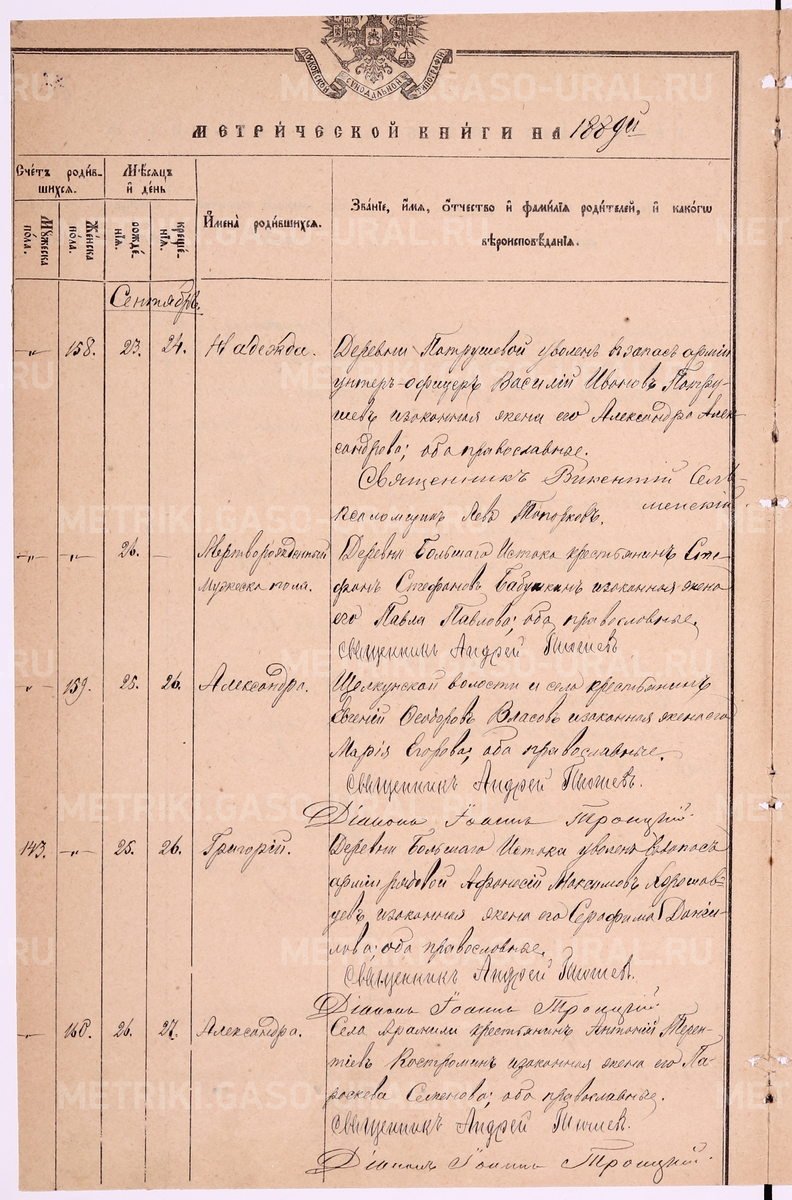 МОСКОВСКОЙ СѴНОДАЛЬНОЙ ТИПОГРАФІИ
МЕТРИ́ЧЕСКОЙ КНИ́ГИ НА 1889й
Сче́тъ роди́в-
шихся.
Мѣ́сяцъ
и҆ де́нь
И҆мена̀ роди́вшихся.
Зва́нїе, и҆́мя, ѻ҆́тчество и҆ фами́лїя роди́телей, и҆ како́гѡ
вѣроисповѣ́данїя.
Мꙋ́жеска
по́ла.
Же́нска
по́ла.
рожде́-
нїя.
креще́-
нїя.
Сентябрь.
-"- 158. 23. 24. Надежда. Деревни Патрушевой уволен. въ запасъ арміи
унтеръ-офицеръ Василій Ивановъ Патру-
шевъ и законная жена его Александра Алек-
сандрова; оба православные.
Священникъ Викентій
Псаломщикъ Левъ Топорковъ.
-"- -"- 26. - Мертворожденный Деревни Большаго Истока крестьянинъ Сте-
Мужеска пола. фанъ Стефановъ Бабушкинъ и законная жена
его Павла Павлова; оба православные.
Священникъ Андрей
-"- 159. 25. 26. Александра. Щелкунской волости и села крестьянинъ
Евгеній Ѳеодоровъ Власовъ и законная жена его
Марія Егорова; оба православные.
Священникъ Андрей
Діаконъ Іоаннъ Троицкій.
143. -"- 25. 26. Григорій. Деревни Большаго Истока уволен. въ запасъ
арміи рядовой Афанасій Максимовъ
и законная жена его Серафима Дани-
лова; оба православные.
Священникъ Андрей
Діаконъ Іоаннъ Троицкій
-"- 160. 26. 27. Александра. Села Арамили крестьянинъ Антоній Терен-
тіевъ Костроминъ и законная жена его Па-
раскева Семенова; оба православные.
Священникъ Андрей
Діаконъ Іоаннъ Троицкій.
METRIKI.GASO-URAL.RU